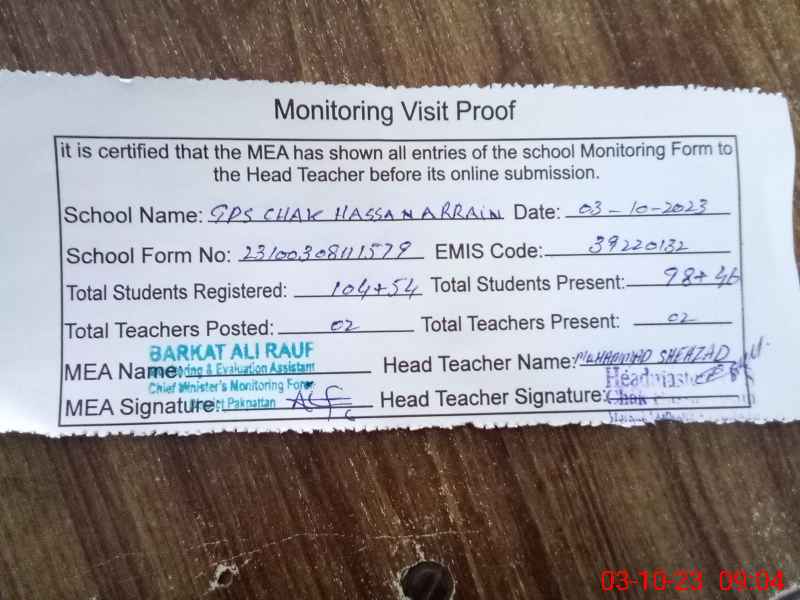 Monitoring Visit Proof
it is certified that the MEA has shown all entries of the school Monitoring Form to
the Head Teacher before its online submission.
School Name: GPS CHAK HASSAN ARRAIN Date: 03-10-2023
School Form No: 23100308111579 EMIS Code: 39220132
Total Students Registered: 104+54 Total Students Present: 98+46
Total Teachers Posted: 02 Total Teachers Present: 02
BARKAT ALI RAUF
MEA Name: & Evaluation Assistant Head Teacher Name: MUHAMMAD SHEHZAD
Chief Minister's Monitoring Force Headmaster
MEA Signature: District Pakpattan Head Teacher Signature: Chak
03-10-23 09:04